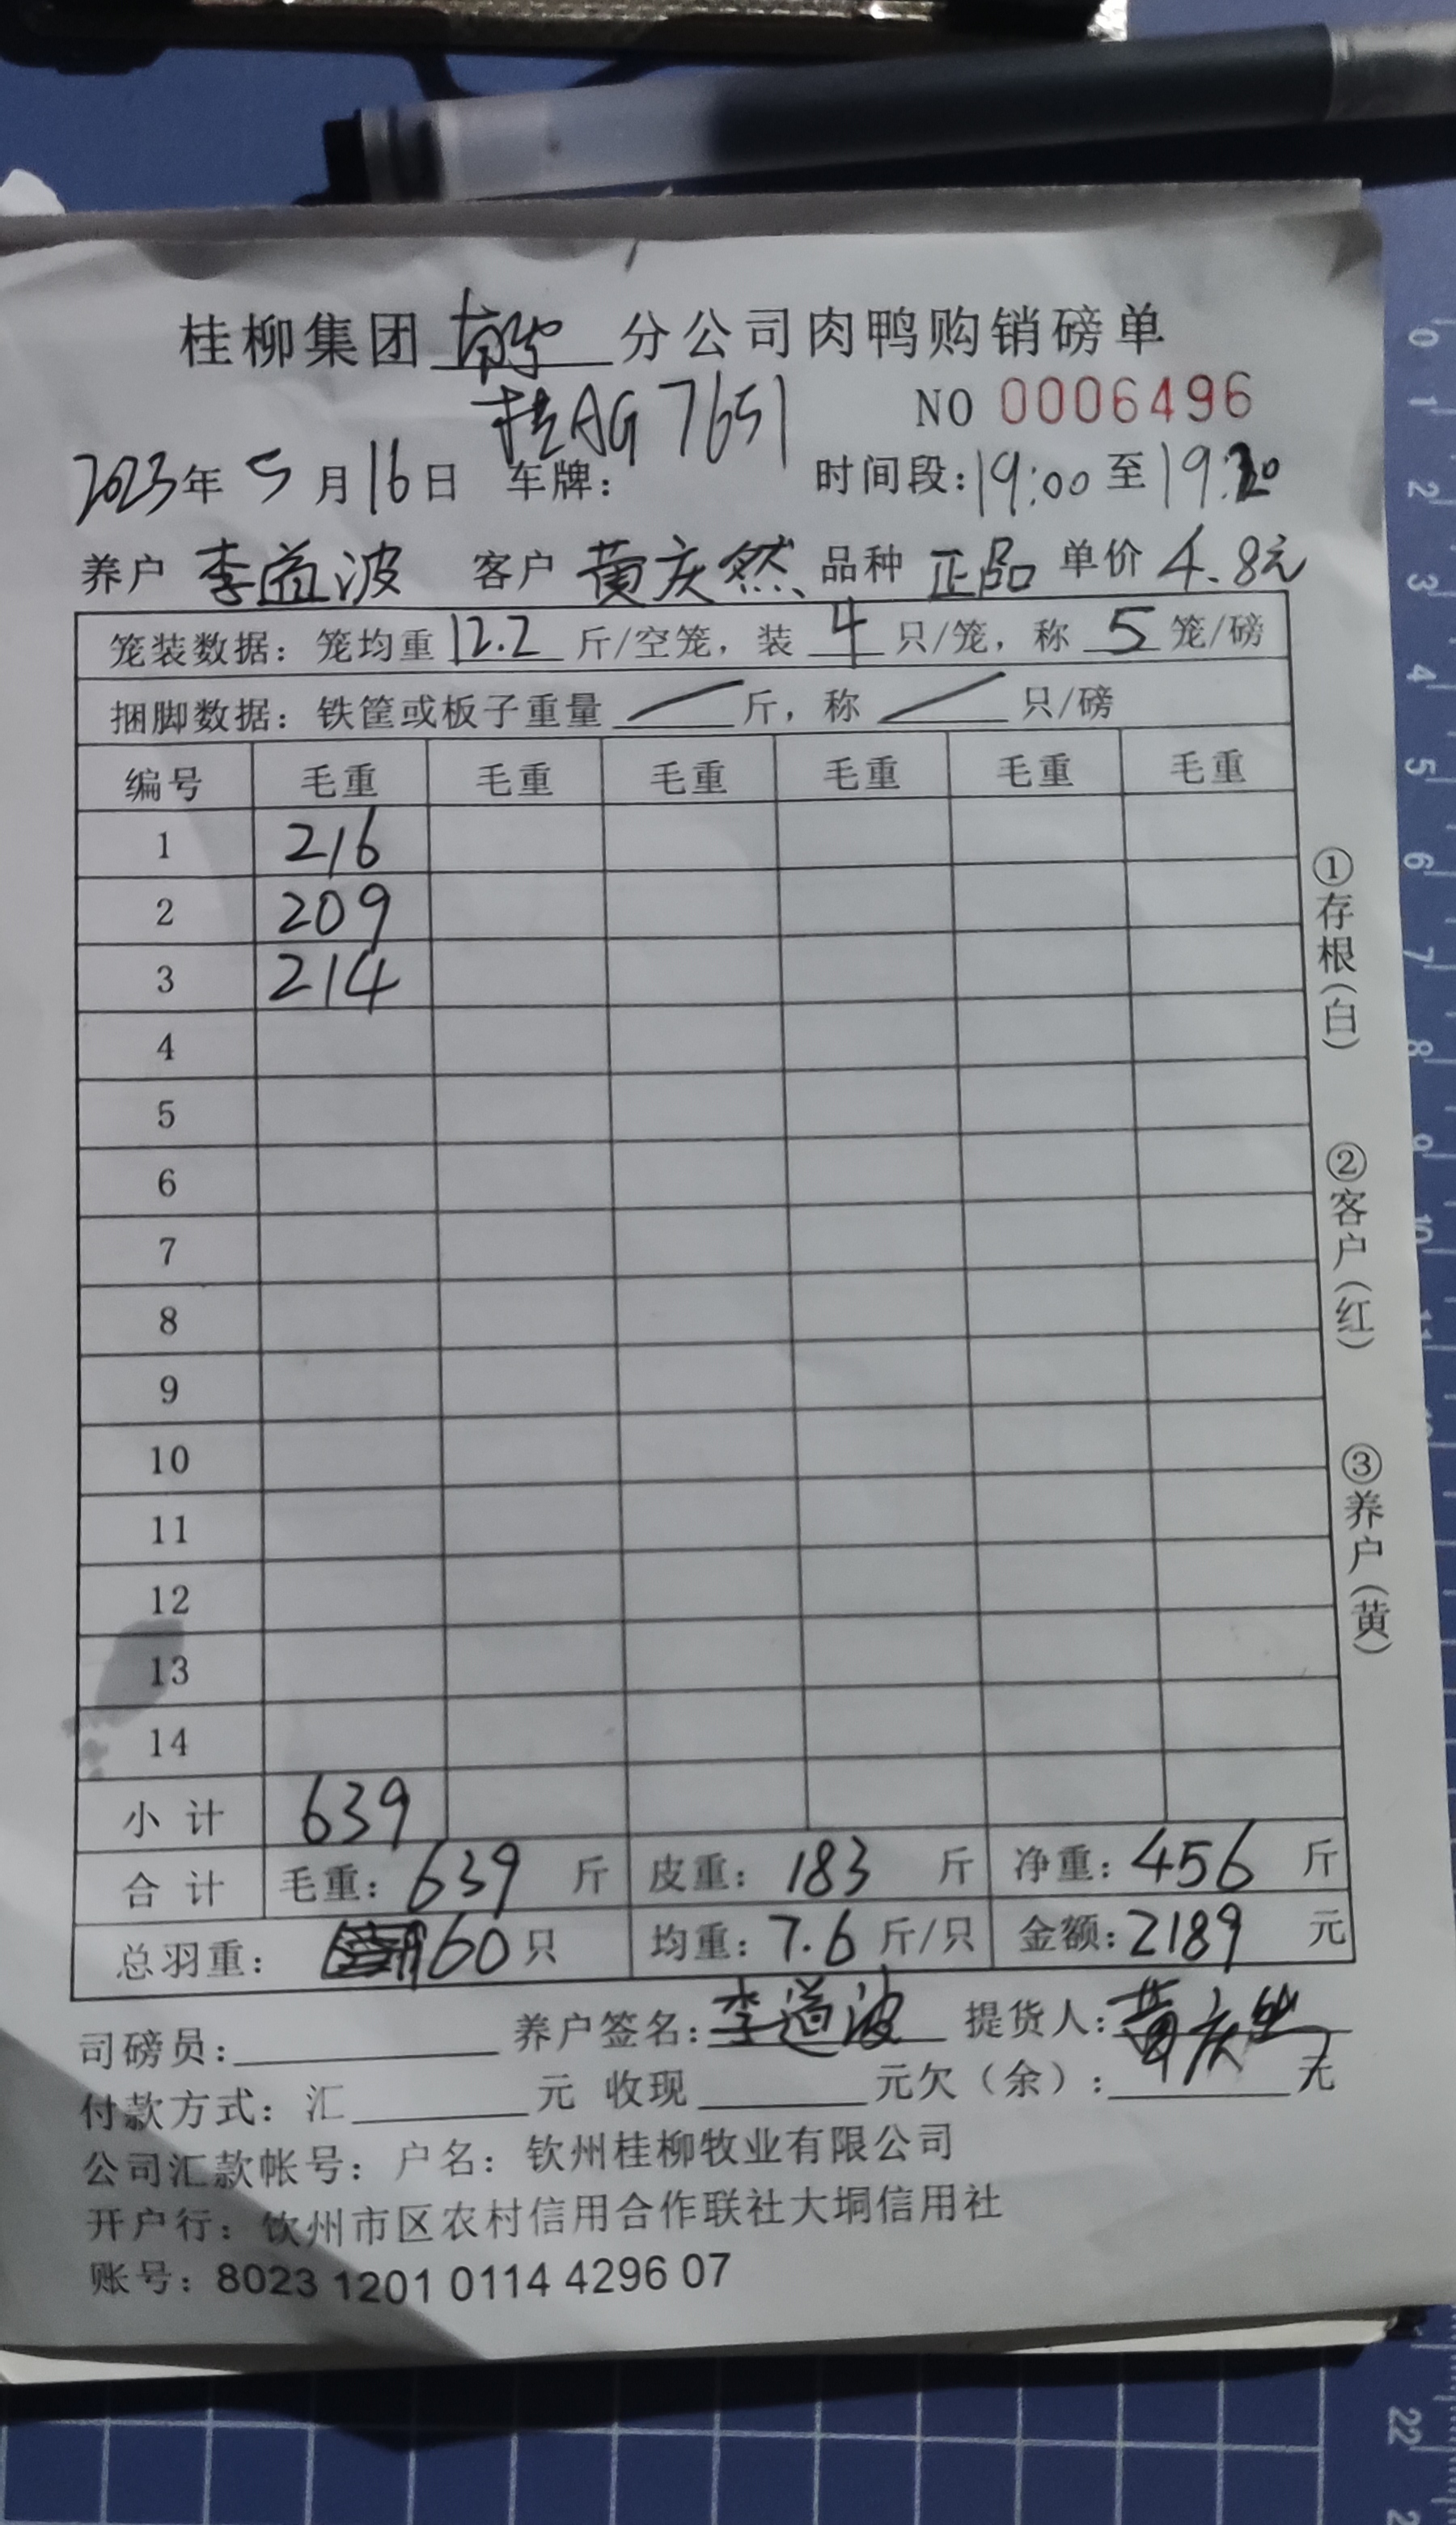 桂柳集团 南宁 分公司肉鸭购销磅单
NO 0006496
2023年 5月16日 车牌: 桂AG7651 时间段:19:00至19:20
养户 李道波 客户 黄庆然 品种 正品 单价 4.8元
笼装数据: 笼均重 12.2 斤/空笼, 装 4 只/笼, 称 5 笼/磅
捆脚数据: 铁筐或板子重量 / 斤, 称 / 只/磅
编号 毛重 毛重 毛重 毛重 毛重 毛重
1 216
2 209
3 214
4
5
6
7
8
9
10
11
12
13
14
小计 639
合计 毛重: 639 斤 皮重: 183 斤 净重: 456 斤
总羽重: 60只 均重: 7.6 斤/只 金额: 2189 元
司磅员: 养户签名: 李道波 提货人: 黄庆然
付款方式: 汇 元 收现 元欠(余): 元
公司汇款帐号: 户名: 钦州桂柳牧业有限公司
开户行: 钦州市区农村信用合作联社大垌信用社
账号: 8023 1201 0114 4296 07
①存根(白)
②客户(红)
③养户(黄)
0
1
2
3
4
5
6
7
8
9
10
11
22